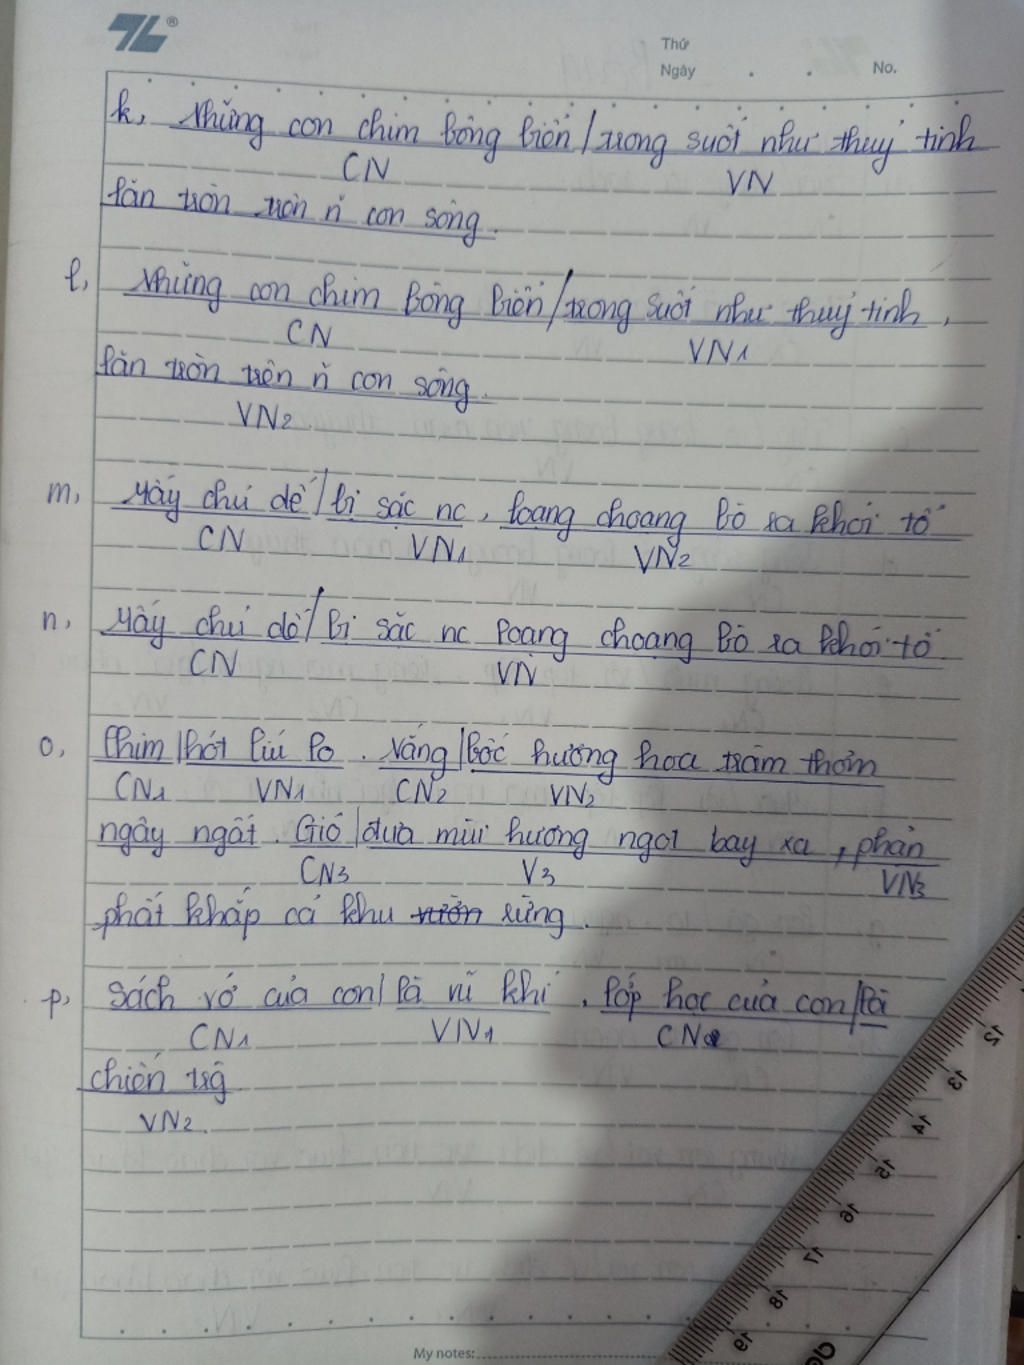 Thứ
Ngày . . No.
k, Những con chim bông biển / trong suốt như thuỷ tinh
CN VN
lăn tròn trên con sóng.
l, Những con chim bông biển / trong suốt như thuỷ tinh,
CN VN1
lăn tròn trên con sóng.
VN2
m, Mấy chú dế / bị sặc nc, loạng choạng bò ra khỏi tổ
CN VN1 VN2
n, Mấy chú dế / bị sặc nc loạng choạng bò ra khỏi tổ
CN VN
o, Chim | hót líu lo. Nắng | bốc hương hoa tràm thơm
CN1 VN1 CN2 VN2
ngây ngất. Gió | đưa mùi hương ngọt bay xa, phản
CN3 V3 VN3
phất khắp cả khu rừng.
p, Sách vở của con | là vũ khí. lớp học của con | là
CN1 VN1 CN2
chiến trg
VN2.
12
13
14
15
16
17
18
19
My notes: